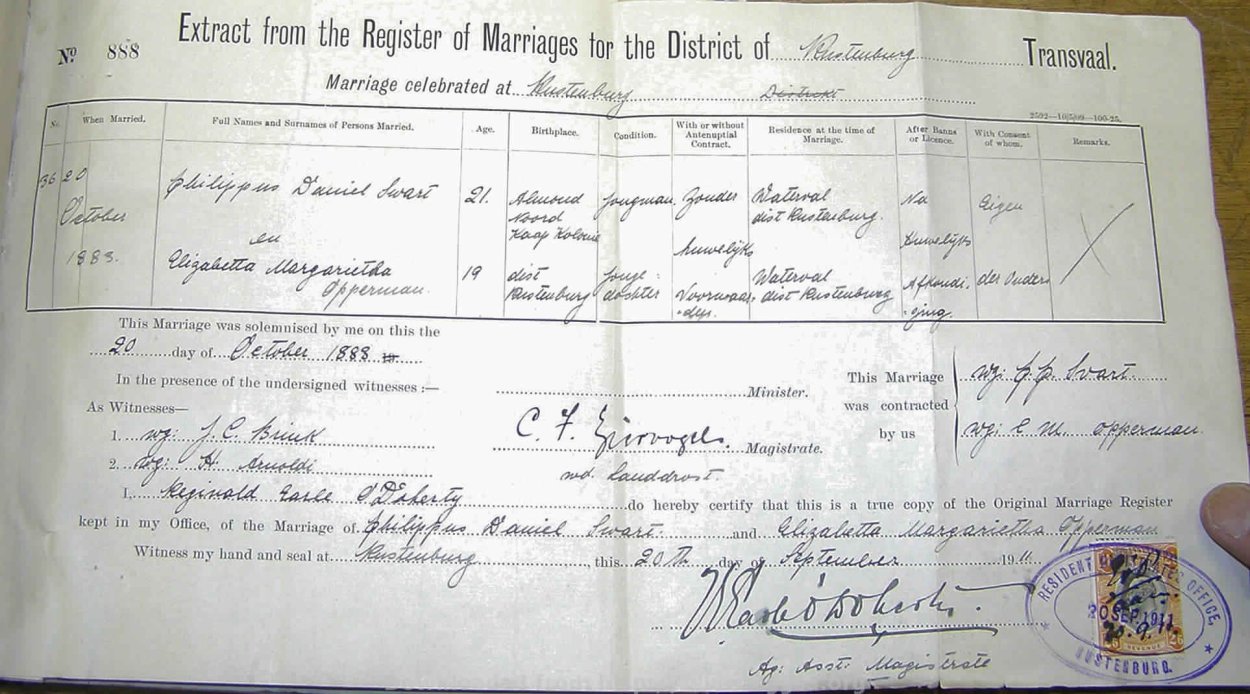 Nº 888
Extract from the Register of Marriages for the District of Rustenburg Transvaal.
Marriage celebrated at Rustenburg District
2592—10|5|09—100-25.
No. When Married. Full Names and Surnames of Persons Married. Age. Birthplace. Condition. With or without Antenuptial Contract. Residence at the time of Marriage. After Banns or Licence. With Consent of whom. Remarks.
36 20 October 1883. Philippus Daniel Swart 21. Almond Noord Kaap Kolonie Jongman Zonder Waterval dist Rustenburg. Na Eigen
en Huwelijks Huwelijks
Elizabetta Margarietha Opperman 19 dist Rustenburg Jonge-dochter Voorwaar-den. Waterval dist Rustenburg Afkondi-ging der Ouders
This Marriage was solemnised by me on this the
20 day of October 1888
In the presence of the undersigned witnesses :—
Minister.
This Marriage was contracted by us
wg: P. D. Swart
wg: E M. Opperman.
As Witnesses—
1. wg: J. C. Brink
C. F. Ziervogels. Magistrate.
2. wg: H. Arnoldi
wd. Landdrost.
I, Reginald Earle O'Doherty do hereby certify that this is a true copy of the Original Marriage Register
kept in my Office, of the Marriage of Philippus Daniel Swart and Elizabetta Margarietha Opperman
Witness my hand and seal at Rustenburg, this 20th day of September 1911
Ag: Asst: Magistrate
RESIDENT MAGISTRATES OFFICE,
20 SEP. 1911
RUSTENBURG.
REVENUE